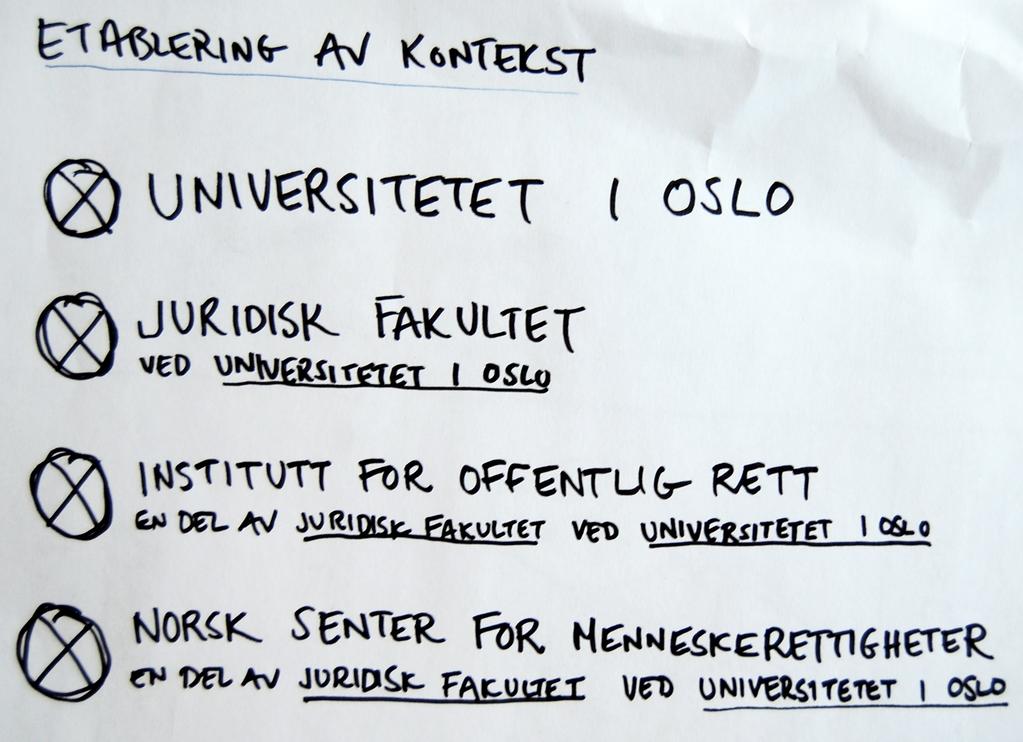 ETABLERING AV KONTEKST
UNIVERSITETET I OSLO
JURIDISK FAKULTET
VED UNIVERSITETET I OSLO
INSTITUTT FOR OFFENTLIG RETT
EN DEL AV JURIDISK FAKULTET VED UNIVERSITETET I OSLO
NORSK SENTER FOR MENNESKERETTIGHETER
EN DEL AV JURIDISK FAKULTET VED UNIVERSITETET I OSLO